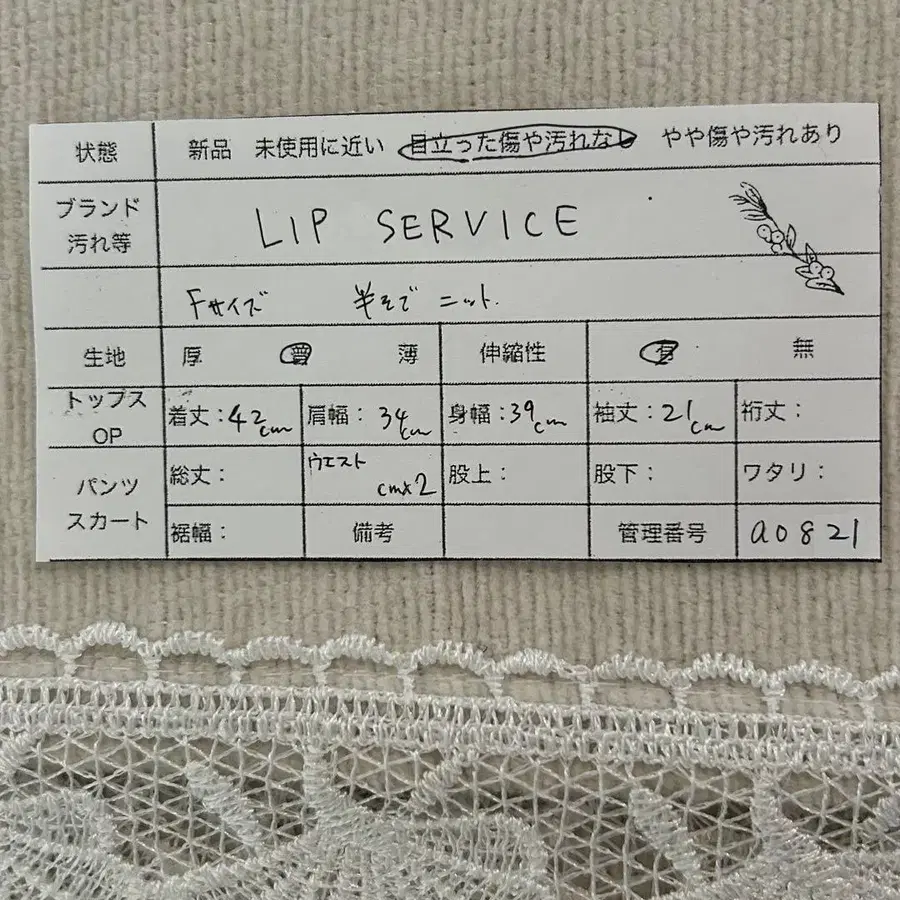 状態 新品 未使用に近い 目立った傷や汚れなし やや傷や汚れあり
ブランド
汚れ等
LIP SERVICE
Fサイズ 半そで ニット.
生地 厚 普 薄 伸縮性 有 無
トップス
OP
着丈:42cm 肩幅: 34cm 身幅:39cm 袖丈:21cm 裄丈:
パンツ
スカート
総丈: ウエスト cm×2 股上: 股下: ワタリ:
裾幅: 備考 管理番号 a0821